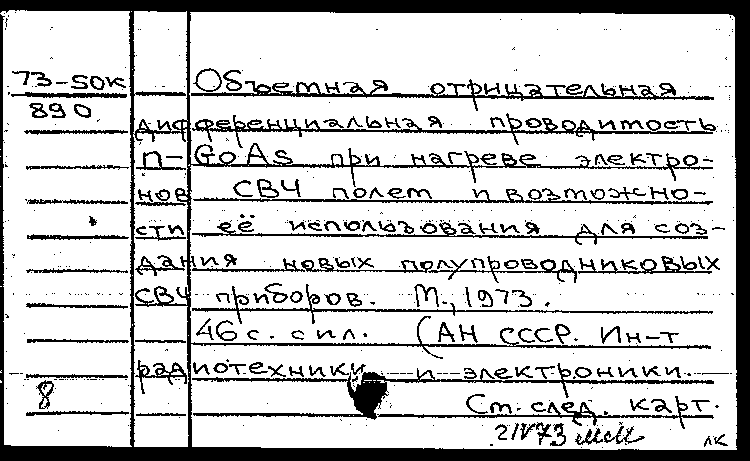 73-50К Объемная отрицательная
890 дифференциальная проводимость
n-GaAs при нагреве электро-
нов СВЧ полем и возможно-
сти её использования для соз-
дания новых полупроводниковых
СВЧ приборов. М., 1973.
46 с. с ил. (АН СССР. Ин-т
радиотехники и электроники.
8 См. след. карт.
2/IV73
лк